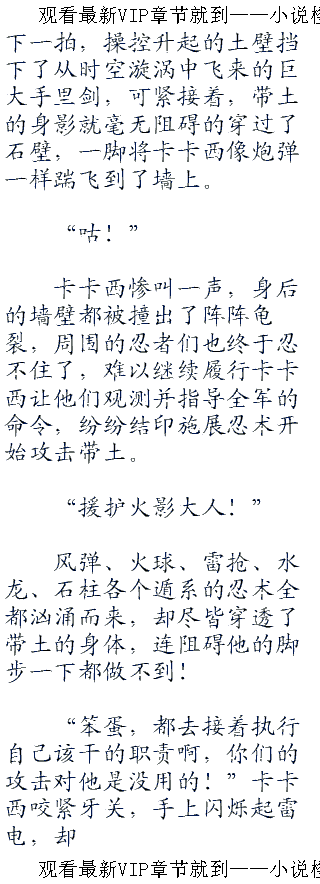 观看最新VIP章节就到——小说
下一拍，操控升起的土壁挡
下了从时空漩涡中飞来的巨
大手里剑，可紧接着，带土
的身影就毫无阻碍的穿过了
石壁，一脚将卡卡西像炮弹
一样踹飞到了墙上。
“咕！”
卡卡西惨叫一声，身后
的墙壁都被撞出了阵阵龟
裂，周围的忍者们也终于忍
不住了，难以继续履行卡卡
西让他们观测并指导全军的
命令，纷纷结印施展忍术开
始攻击带土。
“援护火影大人！”
风弹、火球、雷抢、水
龙、石柱各个遁系的忍术全
都汹涌而来，却尽皆穿透了
带土的身体，连阻碍他的脚
步一下都做不到！
“笨蛋，都去接着执行
自己该干的职责啊，你们的
攻击对他是没用的！”卡卡
西咬紧牙关，手上闪烁起雷
电，却
观看最新VIP章节就到——小说